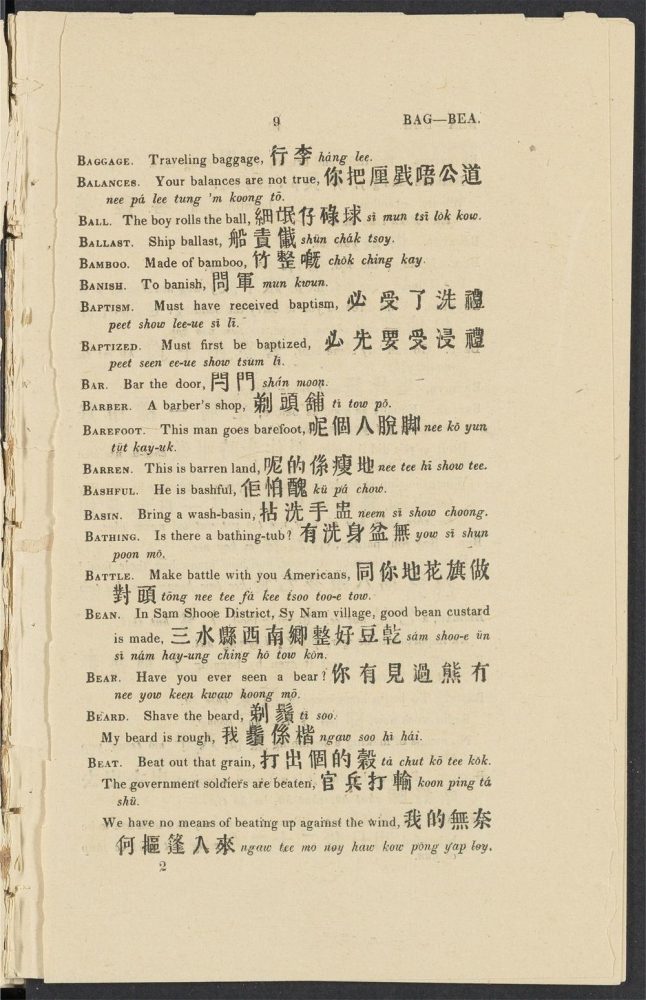 9 BAG—BEA.
BAGGAGE. Traveling baggage, 行李 háng lee.
BALANCES. Your balances are not true, 你把厘戥唔公道
nee pá lee tung 'm koong tō.
BALL. The boy rolls the ball, 細氓仔碌球 sì mun tsī lok kow.
BALLAST. Ship ballast, 船責儎 shūn chák tsoy.
BAMBOO. Made of bamboo, 竹整嘅 chōk ching kay.
BANISH. To banish, 問軍 mun kwun.
BAPTISM. Must have received baptism, 必受了洗禮
peet show lee-ue sī lī.
BAPTIZED. Must first be baptized, 必先要受浸禮
peet seen ee-ue show tsum lī.
BAR. Bar the door, 閂門 shán moon.
BARBER. A barber's shop, 剃頭舖 tī tow pō.
BAREFOOT. This man goes barefoot, 呢個人脫脚 nee kō yun
tüt kay-uk.
BARREN. This is barren land, 呢的係瘦地 nee tee hī show tee.
BASHFUL. He is bashful, 佢怕醜 kū pá chow.
BASIN. Bring a wash-basin, 拈洗手盅 neem sī show choong.
BATHING. Is there a bathing-tub? 有洗身盆無 yow sī shun
poon mō.
BATTLE. Make battle with you Americans, 同你地花旗做
對頭 tōng nee tee fà kee tsoo too-e tow.
BEAN. In Sam Shooe District, Sy Nam village, good bean custard
is made, 三水縣西南鄉整好豆乾 sám shoo-e ün
sì nám hay-ung ching hō tow kōn.
BEAR. Have you ever seen a bear? 你有見過熊冇
nee yow keen kwaw hoong mō.
BEARD. Shave the beard, 剃鬚 tī soo.
My beard is rough, 我鬚係楷 ngaw soo hì hái.
BEAT. Beat out that grain, 打出個的穀 tá chut kō tee kōk.
The government soldiers are beaten, 官兵打輸 koon ping tá
shū.
We have no means of beating up against the wind, 我的無奈
何摳篷入來 ngaw tee mo noy haw kow pōng yap loy.
2